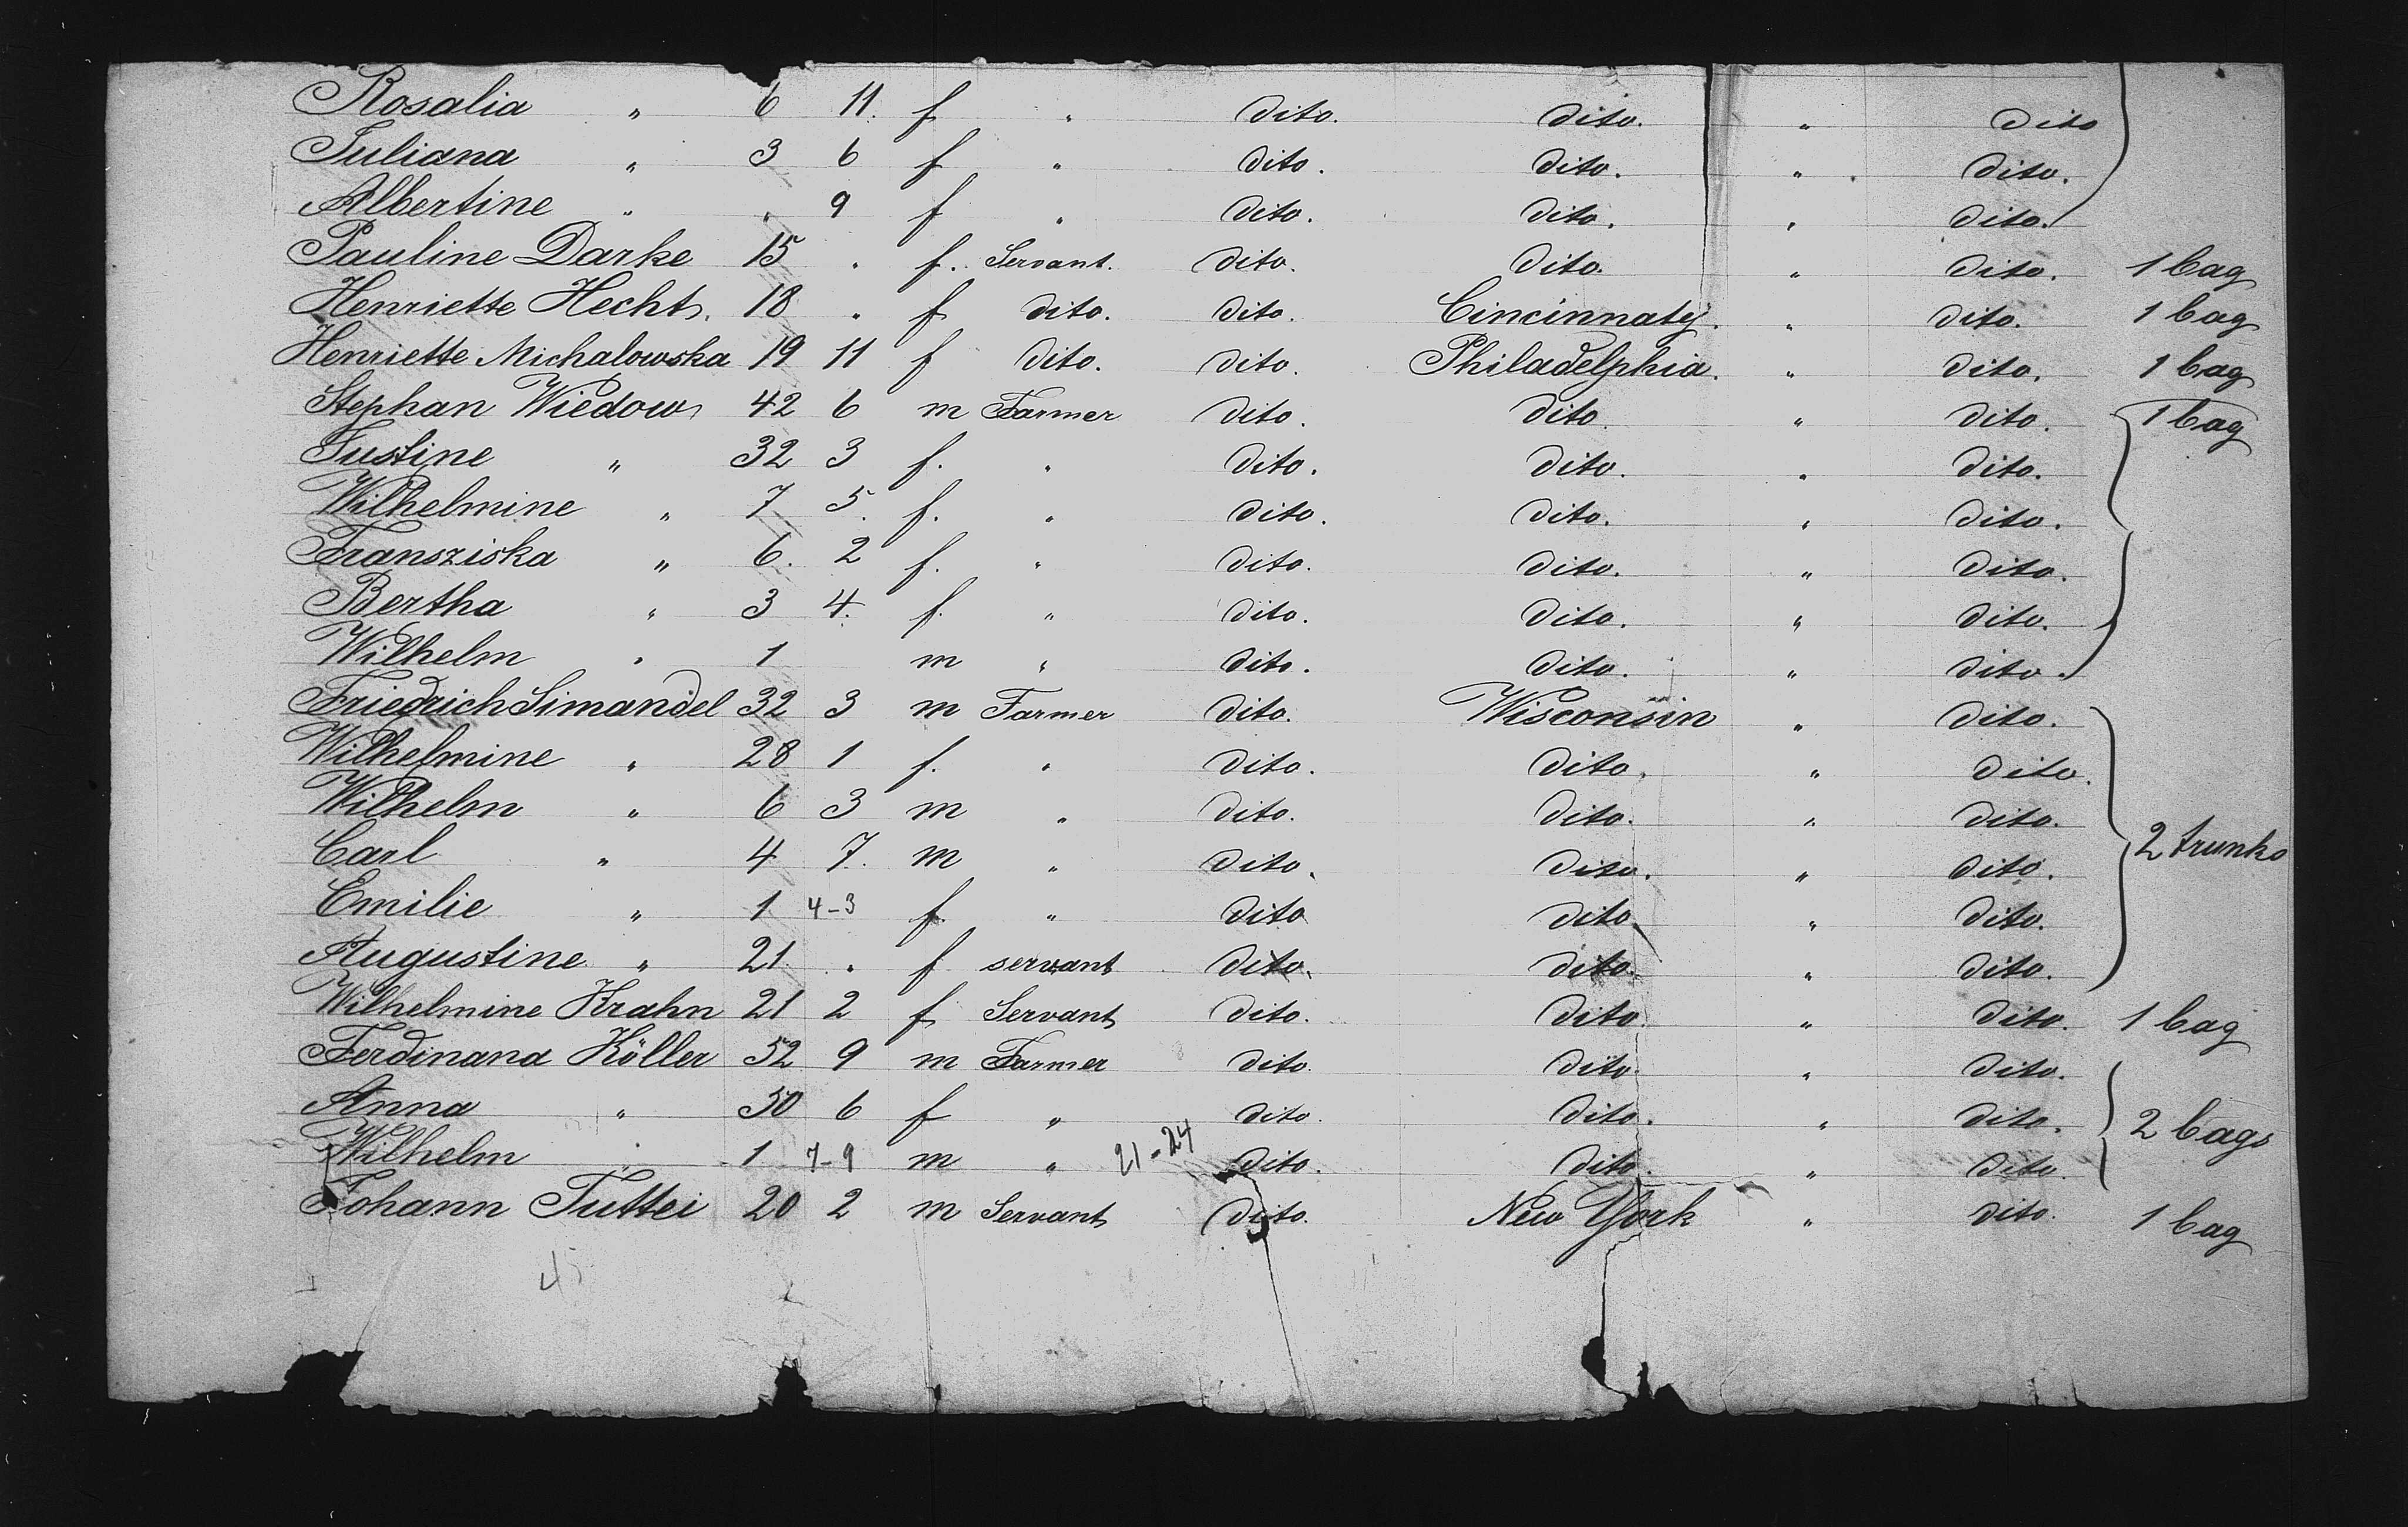 Rosalia " 6 11. f " dito. dito. " dito
Juliana " 3 6 f " dito. dito. " dito.
Albertine " " 9 f " dito. dito. " dito.
Pauline Darke 15 " f. Servant. dito. dito. " dito. 1 bag
Henriette Hecht. 18 " f dito. dito. Cincinnaty. " dito. 1 bag
Henriette Michalowska 19 11 f dito. dito. Philadelphia. " dito. 1 bag
Stephan Wiedow 42 6 m Farmer dito. dito. " dito. 1 bag
Justine " 32 3 f. " dito. dito. " dito.
Wilhelmine " 7 5. f. " dito. dito. " dito.
Fransziska " 6. 2 f. " dito. dito. " dito.
Bertha " 3 4. f. " dito. dito. " dito.
Wilhelm " 1 m " dito. dito. " dito.
Friedrich Simandel 32 3 m Farmer dito. Wisconsin " dito.
Wilhelmine " 28 1 f. " dito. dito. " dito.
Wilhelm " 6 3 m " dito. dito. " dito.
Carl " 4 7. m " dito. dito. " dito. 2 trunks
Emilie " 1 4-3 f. " dito dito. " dito.
Augustine " 21. " f servant dito. dito. " dito.
Wilhelmine Krahn 21 2 f Servant dito. dito. " dito. 1 bag
Ferdinand Köller 52 9 m Farmer dito. dito. " dito.
Anna " 50 6 f " dito. dito. " dito. 2 bags
Wilhelm " 1 7-9 m " 21-24 dito. dito. " dito.
Johann Tuttei 20 2 m Servant dito. New York " dito. 1 bag
45